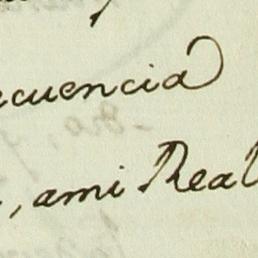 ecuencia
, ami Real